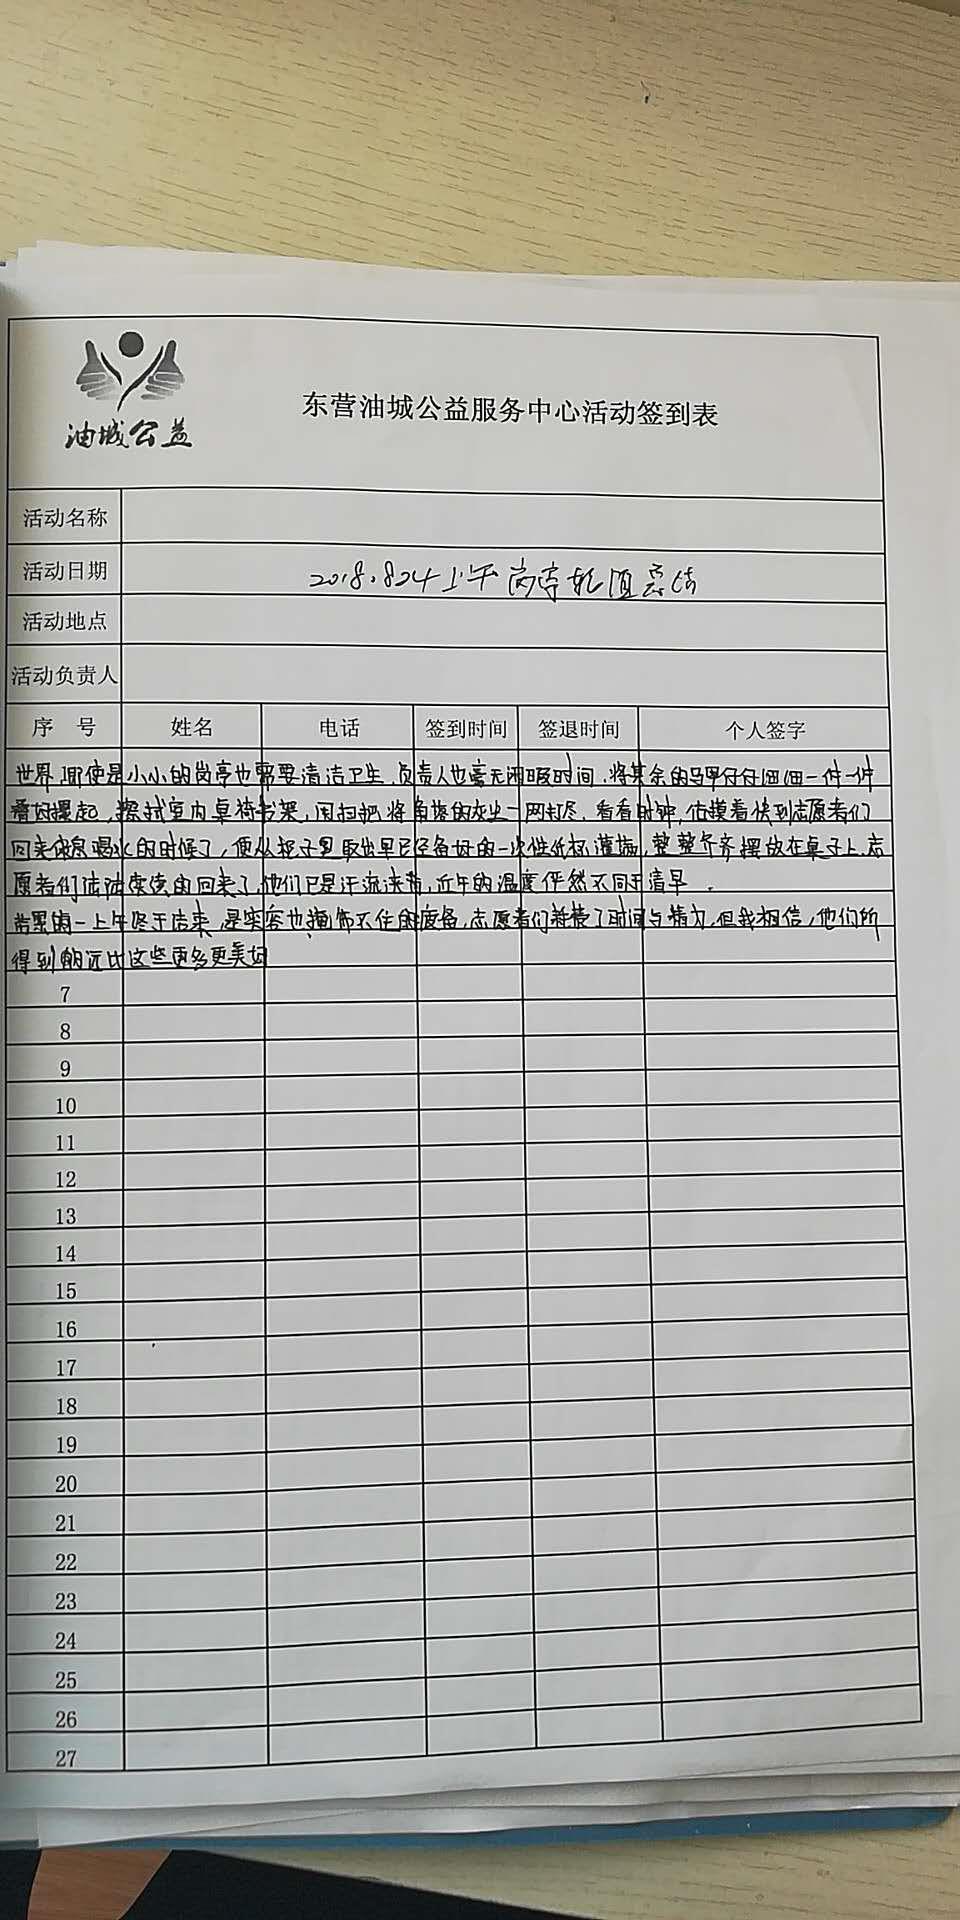 油城公益
东营油城公益服务中心活动签到表
活动名称
活动日期 2018.8.24上午岗亭轮值总结
活动地点
活动负责人
序 号 姓名 电话 签到时间 签退时间 个人签字
世界,即使是小小的岗亭也需要清洁卫生,负责人也毫无闲暇时间,将其余的马甲仔仔细细一件一件
叠好摆起,擦拭室内桌椅书架,用扫把将角落的灰尘一网打尽.看看时钟,估摸着快到志愿者们
回来休息喝水的时候了,便从柜子里取出早已经备好的一次性纸杯灌满,整整齐齐摆放在桌子上.志
愿者们陆陆续续的回来了,他们已是汗流浃背,近午的温度俨然不同于清早.
的一上午终于结束,是笑容也掩饰不住的疲惫,志愿者们耗费了时间与精力,但我相信,他们所
得到的远比这些更多更美好
7
8
9
10
11
12
13
14
15
16
17
18
19
20
21
22
23
24
25
26
27